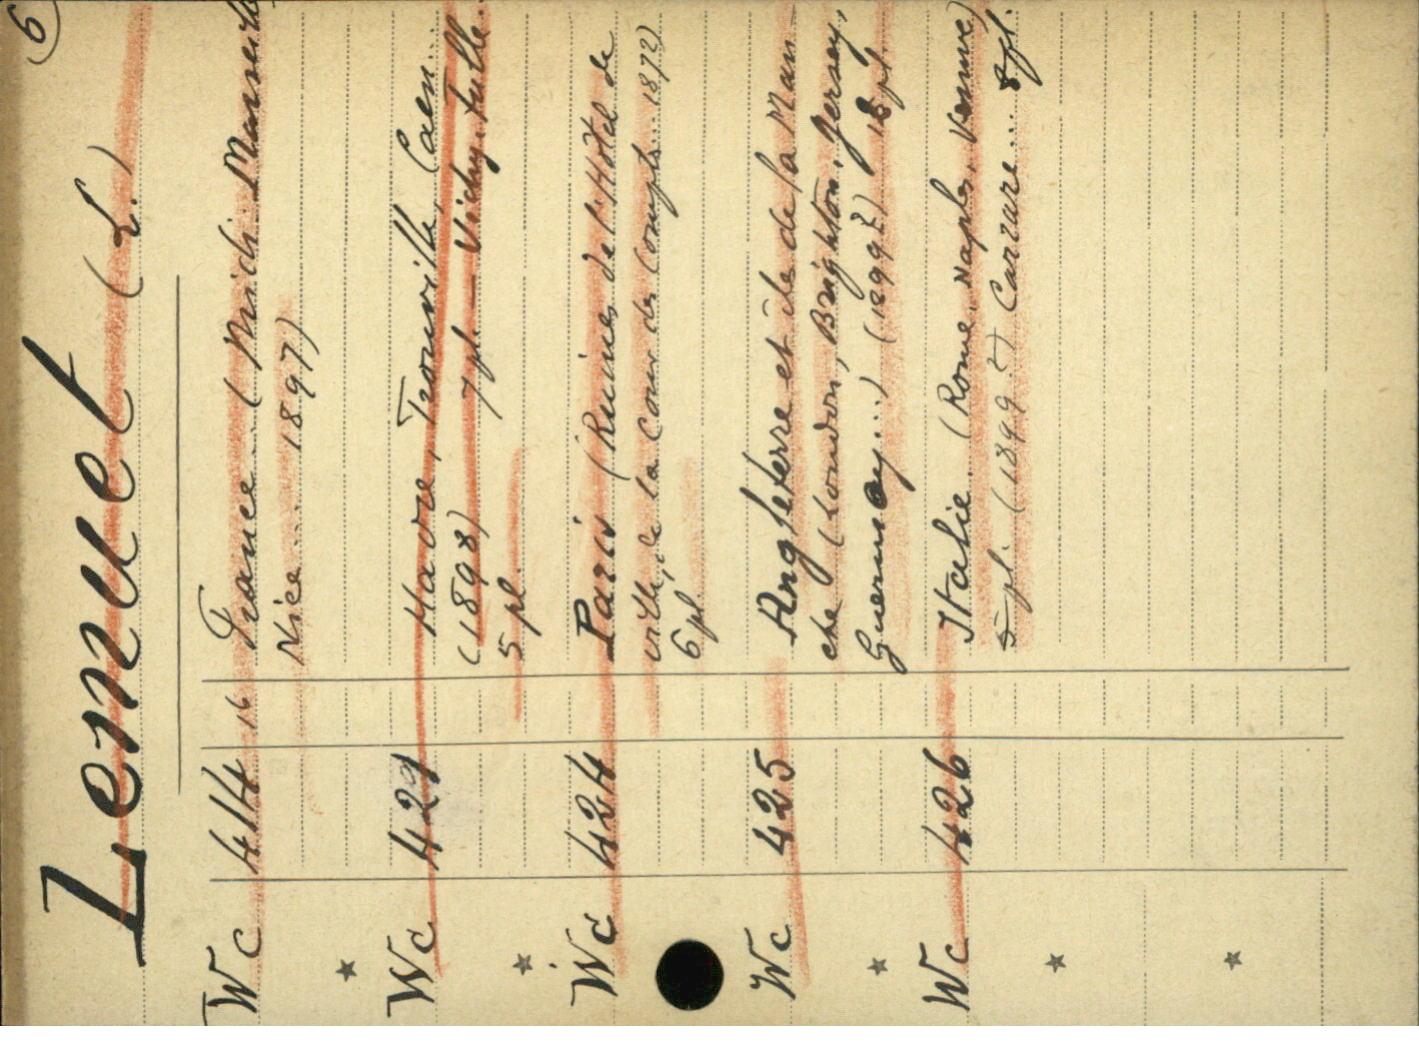 6
Lemuet (L.)
Wc 414 16 France .. ( Midi. Marseille
Nice ... 1897)
Wc 421 Havre, Trouville, Caen...
(1898) 7 pl. — Vichy, Tulle.
5 pl.
Wc 424 Paris (Ruines de l'Hôtel de
ville, de la Cour des Comptes... 1872)
6 pl.
Wc 425 Angleterre et îles de la Man-
che (London, Brighton, Jersey,
Guernsey...) (1899?) pl.
Wc 426 Italie. (Rome, Naples, Venise)
5 pl. (1899?) Carrare... 8 pl.